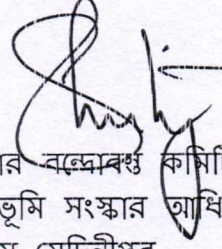 র বন্দোবস্ত কমিটি
ভূমি সংস্কার আধি
মেদিনীপুর